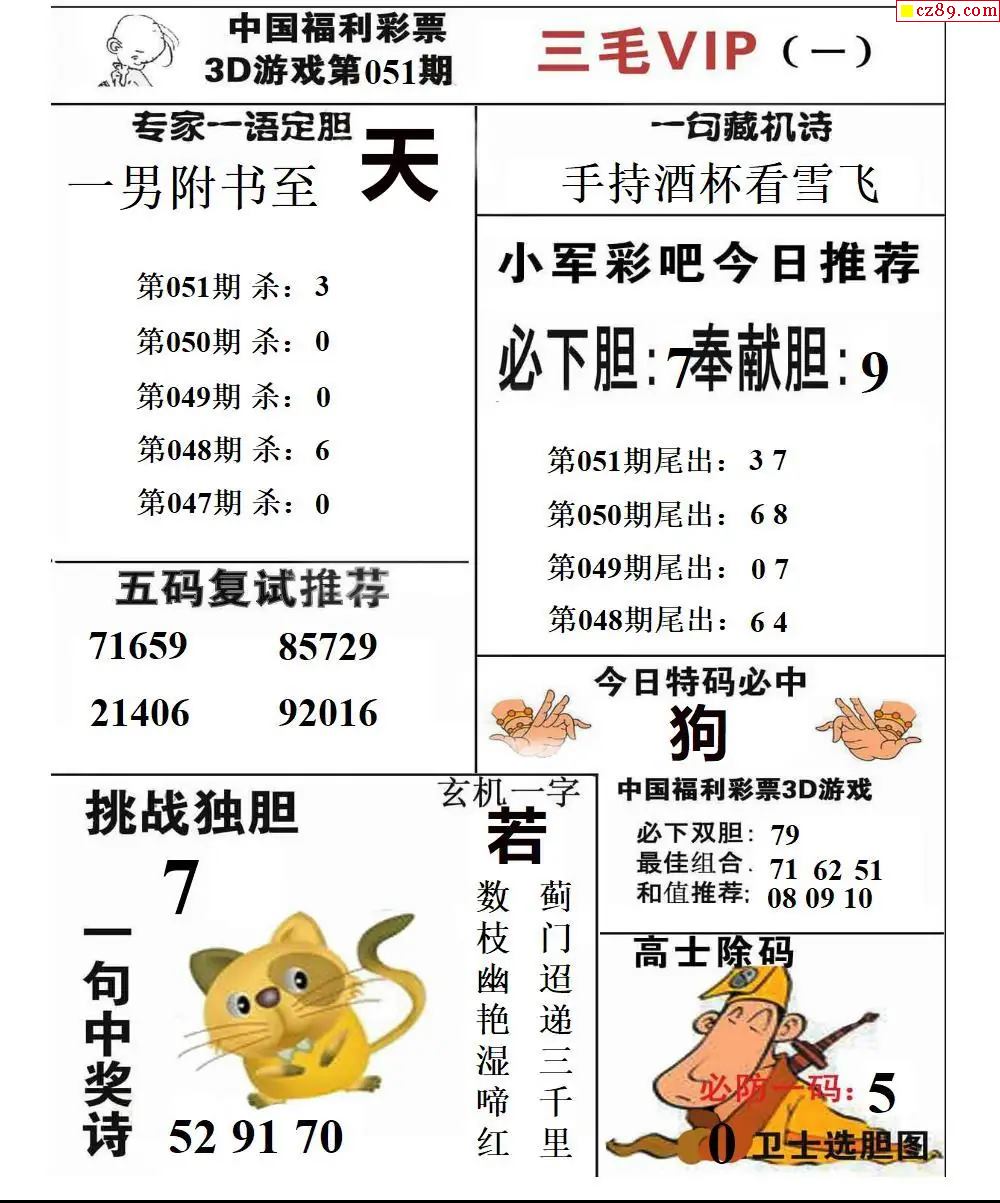 cz89.com
中国福利彩票
3D游戏第051期
三毛VIP（一）
专家一语定胆
天
一男附书至
第051期 杀：3
第050期 杀：0
第049期 杀：0
第048期 杀：6
第047期 杀：0
一句藏机诗
手持酒杯看雪飞
小军彩吧今日推荐
必下胆:7奉献胆:9
第051期尾出：3 7
第050期尾出：6 8
第049期尾出：0 7
第048期尾出：6 4
五码复试推荐
71659 85729
21406 92016
今日特码必中
狗
挑战独胆
7
一句中奖诗
52 91 70
玄机一字
若
蓟门迢递三千里
数枝幽艳湿啼红
中国福利彩票3D游戏
必下双胆：79
最佳组合. 71 62 51
和值推荐; 08 09 10
高士除码
必防一码：5
0 卫士选胆图